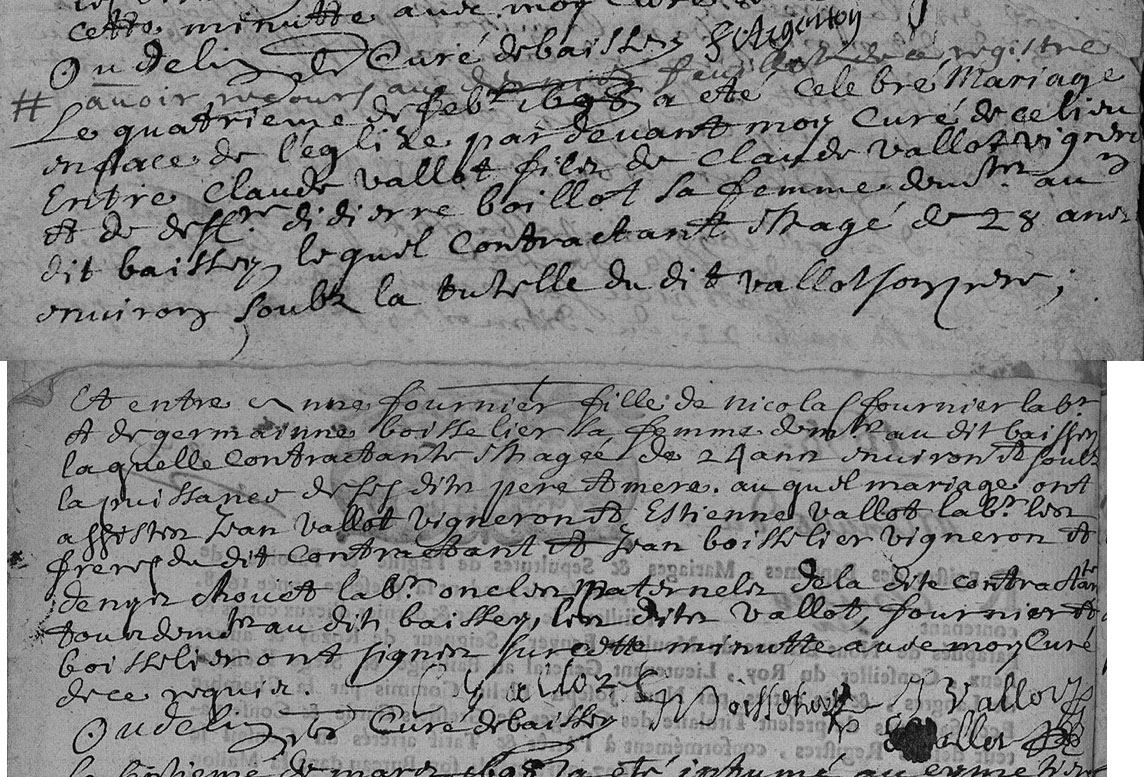 cette minutte avec moy Curé
Oudelin ptre Curé de baissey
# avoir recours au feuillet de ce registre
Le quatrieme de feb.r 1698 a eté celebré Mariage
en face de l'eglize par devant moy Curé de ce lieu
Entre Claude vallot filz de Claude vallot vigneron
et de deff.te didierre boillot sa femme dem.tz au
dit baissey, lequel Contractant est agé de 28 ans
environ soubz la tutelle du dit vallot son pere;
Et entre anne fournier fille de nicolas fournier lab.r
et de germainne boisselier sa femme dem.tz au dit baissey
laquelle Contractante est agée de 24 ans environ et soubz
la puissance de ses ditz pere et mere. auquel mariage ont
assistez Jean vallot vigneron et Estienne vallot lab.r les
freres du dit Contractant et Jean boisselier vigneron et
denys chouet lab.r oncles maternels de la dite contractante
tous dem.tz au dit baissey, les ditz vallot, fournier et
boisselier ont signez sur cette minutte avec moy Curé
de ce requis. C vallot J boisselier J Vallot
Oudelin ptre Curé de baissey vallot
de mars 1698 a été inhumé au